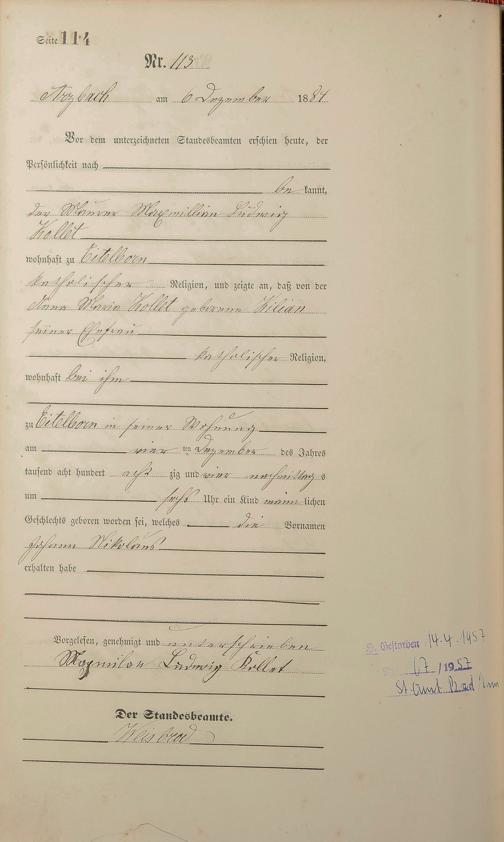 Seite 114
Nr. 113
Arzbach am 6 Dezember 1884
Vor dem unterzeichneten Standesbeamten erschien heute, der
Persönlichkeit nach
be kannt,
der Maurer Maxmillian Ludwig
Kollet
wohnhaft zu Eitelborn
katholischer Religion, und zeigte an, daß von der
Anna Maria Kollet geborene Kilian
seiner Ehefrau
katholischer Religion,
wohnhaft bei ihm
zu Eitelborn in seiner Wohnung
am vier ten Dezember des Jahres
tausend acht hundert acht zig und vier nachmittag s
um sechs Uhr ein Kind männ lichen
Geschlechts geboren worden sei, welches die Vornamen
Johann Nikolaus
erhalten habe
Vorgelesen, genehmigt und unterschrieben
Maxmilan Ludwig Kollet
Der Standesbeamte.
Weisbrod
Gestorben 14.4.1957
67/1957
St. Amt Bad